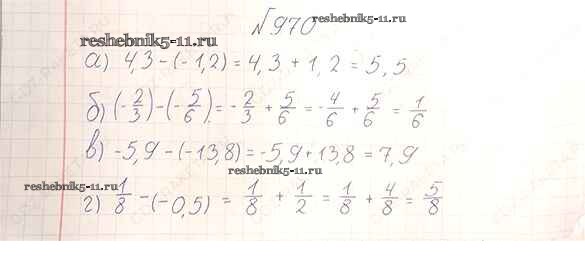 №970
reshebnik5-11.ru
reshebnik5-11.ru
а) 4,3 - (-1,2) = 4,3 + 1,2 = 5,5
б) (-2/3) - (-5/6) = -2/3 + 5/6 = -4/6 + 5/6 = 1/6
в) -5,9 - (-13,8) = -5,9 + 13,8 = 7,9
reshebnik5-11.ru
reshebnik5-11.ru
г) 1/8 - (-0,5) = 1/8 + 1/2 = 1/8 + 4/8 = 5/8